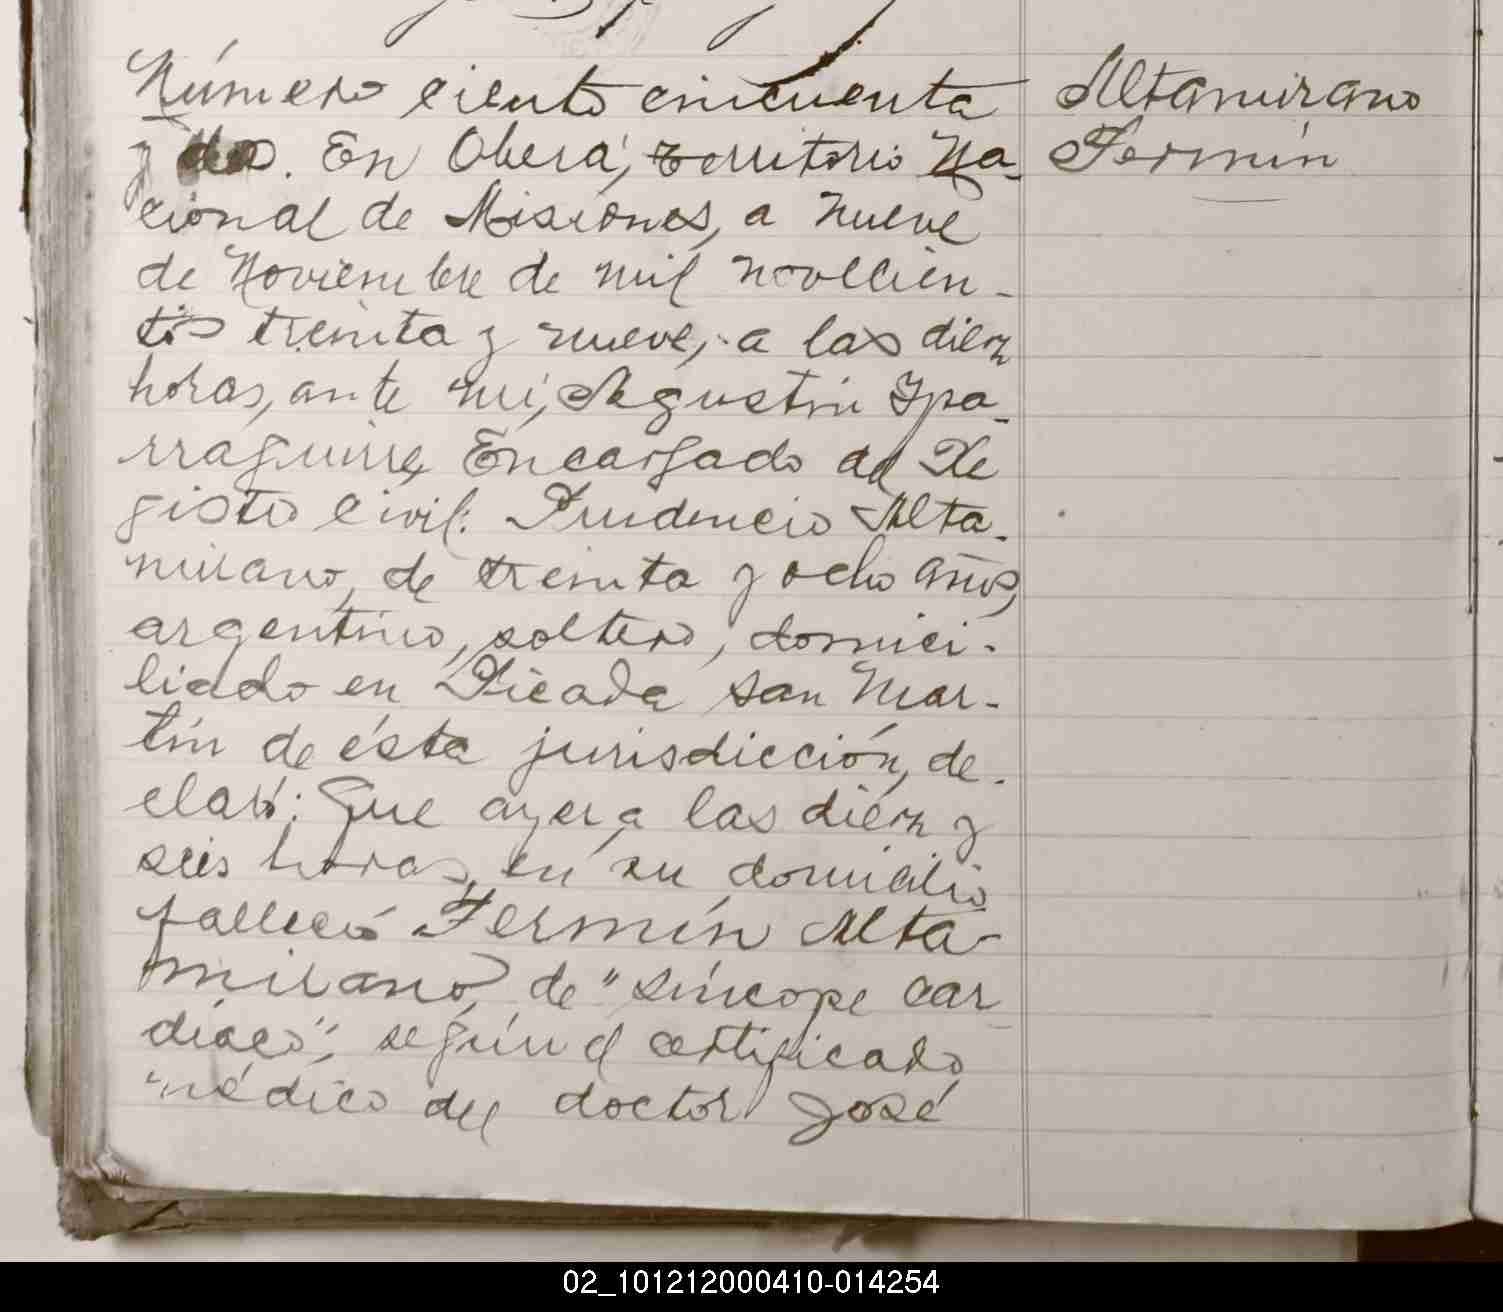 Número ciento cincuenta
y dos. En Oberá, Territorio Na-
cional de Misiones, a nueve
de Noviembre de mil novecien-
tos treinta y nueve, a las diez
horas, ante mí, Agustín Ypa-
rraguirre, Encargado del Re
gistro Civil: Prudencio Alta-
mirano, de treinta y ocho años,
argentino, soltero, domici-
liado en Picada San Mar-
tín de ésta jurisdicción, de-
claró: Que ayer a las diez y
seis horas, en su domicilio
falleció Fermín Alta-
mirano, de "síncope car
díaco", según el certificado
médico del doctor José
Altamirano
Fermín
02_101212000410-014254